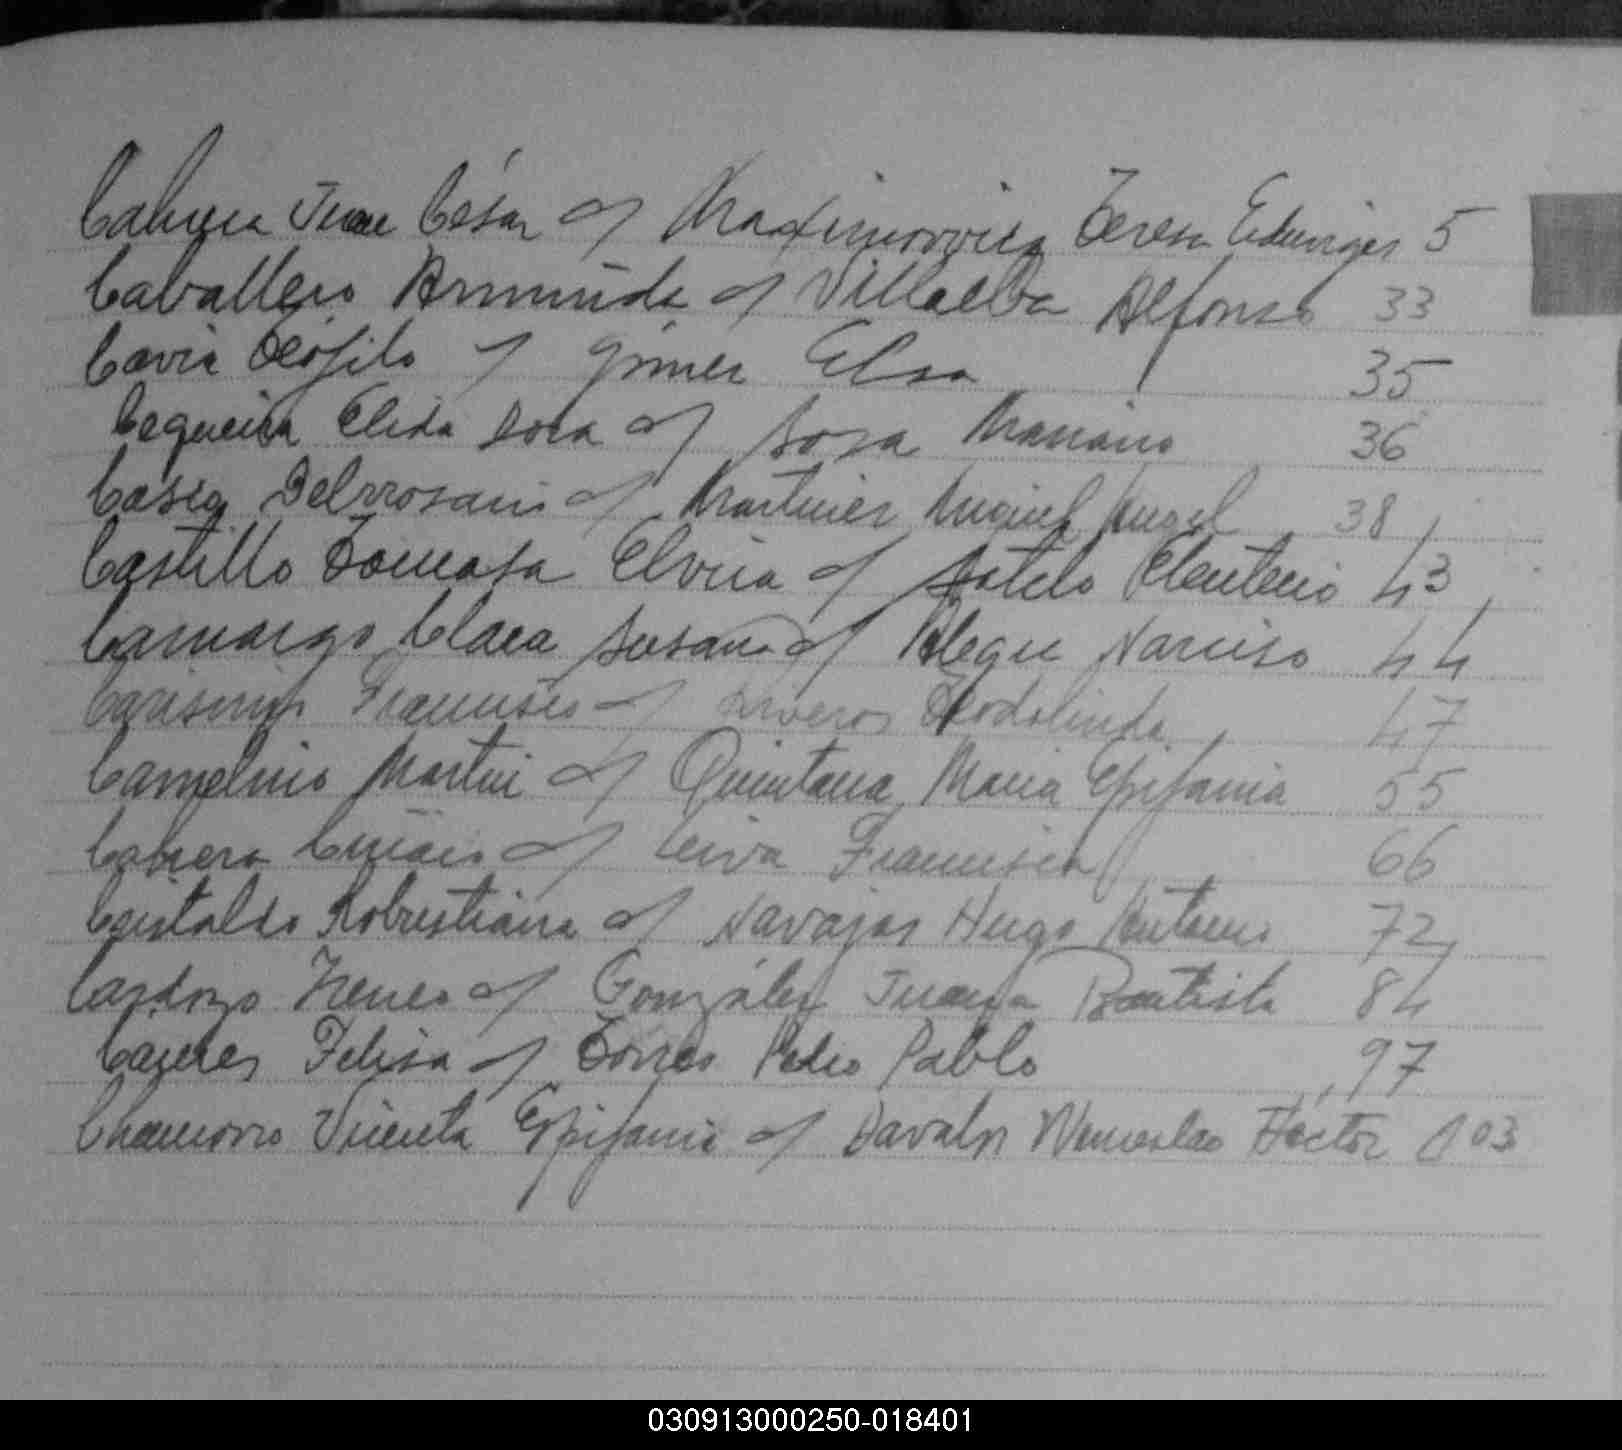 Cabrera Juan César c/ Maximovvich Teresa Eduviges 5
Caballero Arminda c/ Villalba Alfonso 33
Cavia Teófilo c/ Gómez Elsa 35
Cequeira Elida Dora c/ Sosa Mariano 36
Delrrosario c/ Martinez Miguel Angel 38
Castillo Tomasa Elvira c/ Sotelo Eleuterio 43
Camargo Clara Susana c/ Alegre Narciso 44
Francisco c/ Teodolinda 47
Martin c/ Quintana Maria Epifania 55
Cabrera c/ Leiva Francisca 66
Cristaldo Robustiana c/ Navajas Hugo Antonio 72
Cardozo Ireneo c/ González Juana Bautista 84
Caceres Felisa c/ Torres Pedro Pablo 97
Chamorro Vicenta Epifania c/ Davalos Wenceslao Hector 103
030913000250-018401